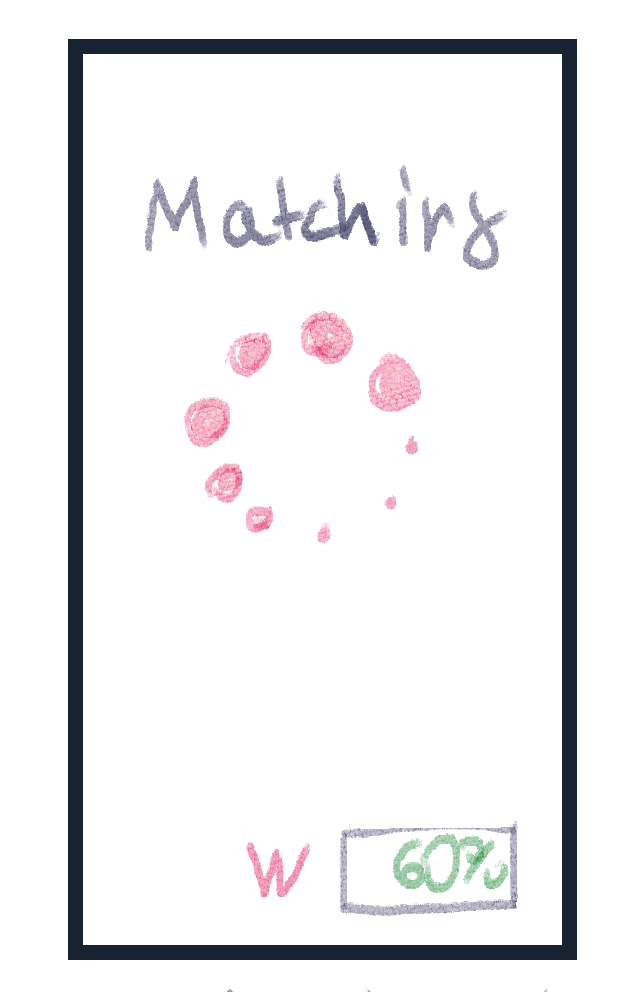 Matching
W 60%